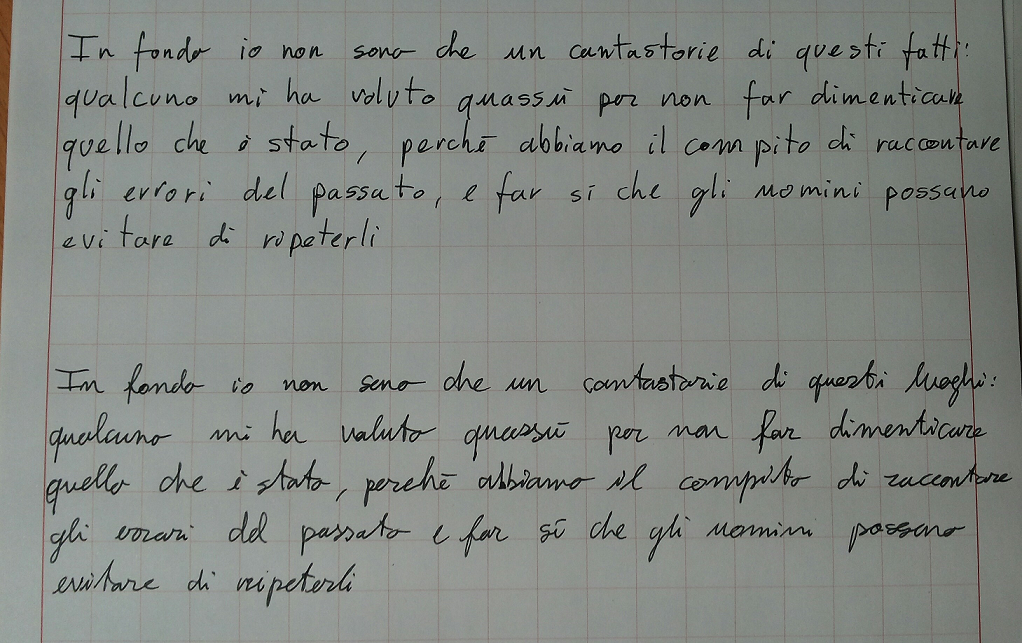 In fondo io non sono che un cantastorie di questi fatti:
qualcuno mi ha voluto quassù per non far dimenticare
quello che è stato, perchè abbiamo il compito di raccontare
gli errori del passato, e far sì che gli uomini possano
evitare di ripeterli
In fondo io non sono che un cantastorie di questi luoghi:
qualcuno mi ha voluto quassù per non far dimenticare
quello che è stato, perchè abbiamo il compito di raccontare
gli errori del passato e far sì che gli uomini possano
evitare di ripeterli